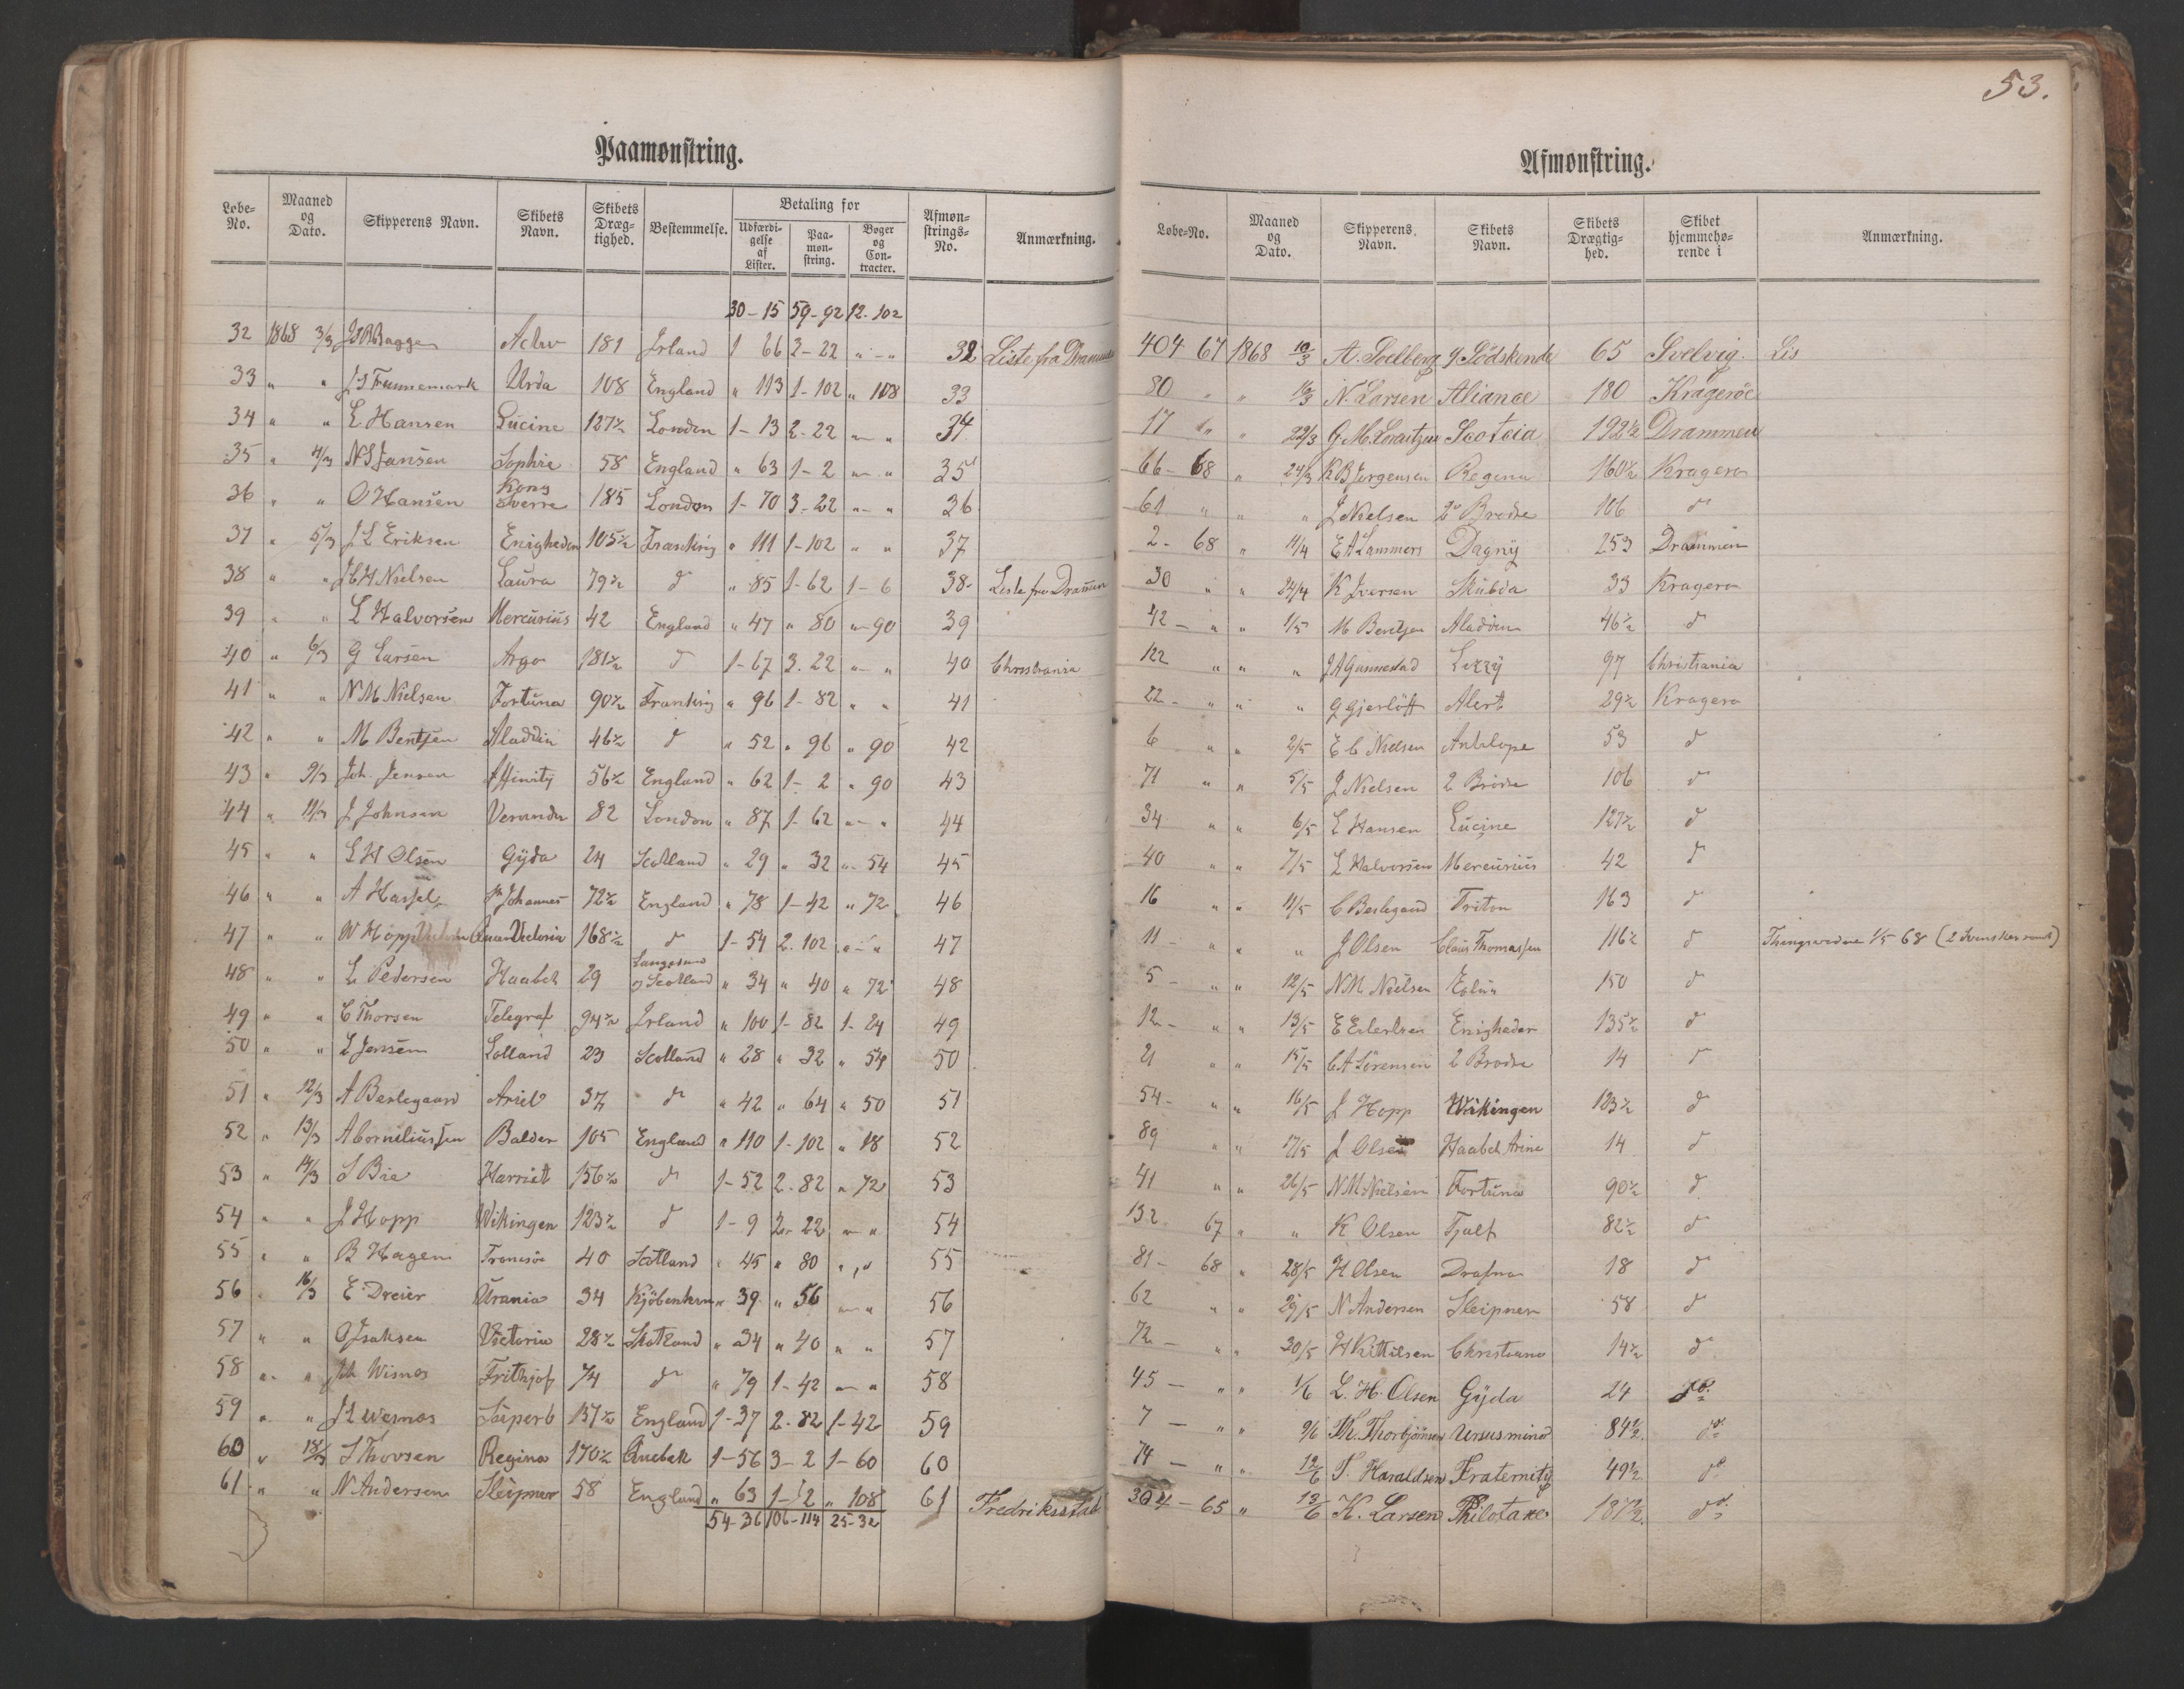 53.
Paamønstring.
Løbe-No. Maaned og Dato. Skipperens Navn. Skibets Navn. Skibets Dræg-tighed. Bestemmelse. Betaling for Udfærdi-gelse af Lister. Paa-møn-string. Bøger og Con-tracter. Afmøn-strings-No. Anmærkning.
30-15 59-92 12-102
32 1868 3/3 181 Irland 1 66 3-22 " - " 32 Liste fra
33 " " Urda 108 England " 113 1-102 " 108 33
34 " " L Hansen Lucine 127½ London 1-13 2-22 " - " 34
35 " 4/3 N S Jansen Sophie 58 England " 63 1-2 " - " 35
36 " " O Hansen Kong Sverre 185 London 1-70 3-22 " - " 36
37 " 5/3 J L Eriksen Enigheden 105½ " 111 1-102 " " 37
38 " " J C H Nielsen Laura 79½ d " 85 1-62 1-6 38 Liste fra Drammen
39 " " L Halvorsen Mercurius 42 England " 47 " 80 " - 90 39
40 " 6/3 G Larsen Argo 181½ d 1-67 3-22 " - " 40 Christiania
41 " " N M Nielsen Fortuna 90½ " 96 1-82 " " 41
42 " " M Bentsen Aladdin 46½ d " 52 " 96 " 90 42
43 " 9/3 Joh. Jensen Affinity 56½ England " 62 1-2 " 90 43
44 " 11/3 J Johnsen 82 London " 87 1-62 " - " 44
45 " " L H Olsen Gyda 24 Scotland " 29 " 32 " - 54 45
46 " " A Hassel St Johannes 72½ England " 78 1-42 " 72 46
47 " " W Hopp Victoria 168½ d 1-54 2-102 " - " 47
48 " " L Pedersen Haabet 29 Langesund og Scotland " 34 " 40 " 72 48
49 " " C Thorsen Telegraf 94½ Irland " 100 1-82 1-24 49
50 " " L Jensen Lolland 23 Scotland " 28 " 32 " 54 50
51 " 12/3 A Berlegaard Ariel 37 d " 42 " 64 " 50 51
52 " 13/3 A Corneliussen Balder 105 England " 110 1-102 " 18 52
53 " 14/3 S Bie Harriet 156½ d 1-52 2-82 " 72 53
54 " " J Hopp Wikingen 123½ d 1-9 2-22 " - " 54
55 " " B Hagen Tromsøe 40 Scotland " 45 " 80 " " 55
56 " 16/3 E Dreier Urania 34 Kjöbenhavn " 39 " 56 " - " 56
57 " " O Isaksen Victoria 28½ Skotland " 34 " 40 " " 57
58 " " Wisnes Frithjof 74 d " 79 1-42 " - " 58
59 " " Superb 137½ England 1-37 2-82 1-42 59
60 " 18/3 S Thorsen Regina 170½ Quebek 1-56 3-2 1-60 60
61 " " N Andersen Sleipner 58 England " 63 1-2 " 108 61 Fredriksstad
54-36 106-114 25-32
Afmønstring.
Løbe-No. Maaned og Dato. Skipperens Navn. Skibets Navn. Skibets Drægtig-hed. Skibet hjemmehø-rende i Anmærkning.
404 67 1868 10/3 A. Solberg 4 Södskende 65 Svelvig. Lis
80 " " 16/3 N. Larsen Aliance 180 Kragerøe
17 " " 22/3 Scotia 192½ Drammen
66-68 " 24/3 K B Jørgensen Regina 160½ Kragerø
61 " " " J Nielsen 2 Brødre 106 d
2-68 " 11/4 E A Lammers Dagny 253 Drammen
30 " " 24/4 K Iversen 33 Kragerø
42 - " " 1/5 M Bentsen Aladdin 46½ d
122 " " " J A Gunnestad Lizzy 97 Christiania
22 - " " " G Gjerlöff Alert 29½ Kragerø
6 " " 2/5 E C Nielsen Antelope 53 d
71 " " 5/5 J Nielsen 2 Brødre 106 d
34 " " 6/5 L Hansen Lucine 127½ d
40 " " 7/5 L Halvorsen Mercurius 42 d
16 " " 11/5 C Berlegaard Triton 163 d
11 - " " " J Olsen Claus Thomassen 116½ d 1/5 68
5 - " " 12/5 N M Nielsen 150 d
12 - " " 13/5 E Enigheden 135½ d
21 " " 15/5 C A Sörensen 2 Brødre 14 d
54 - " " 16/5 J Hopp Wikingen 123½ d
89 " " 17/5 J Olsen Haabet Arine 14 d
41 " " 26/5 N M Nielsen Fortuna 90½ d
132 67 " " K Olsen Tjalf 82½ d
81 - 68 " 28/5 H Olsen Drafna 18 d
62 " " 29/5 N Andersen Sleipner 58 d
72 - " " 30/5 H Kittilsen Christiane 14½ d
45 - " " 1/6 L. H. Olsen Gyda 24 do
7 - " " 9/6 Th. Thorbjörnsen Ursus minor 84½ do
74 - " " 12/6 T. Haraldsen Fraternity 49½ do
304 - 65 " 12/6 K. Larsen 187½ do